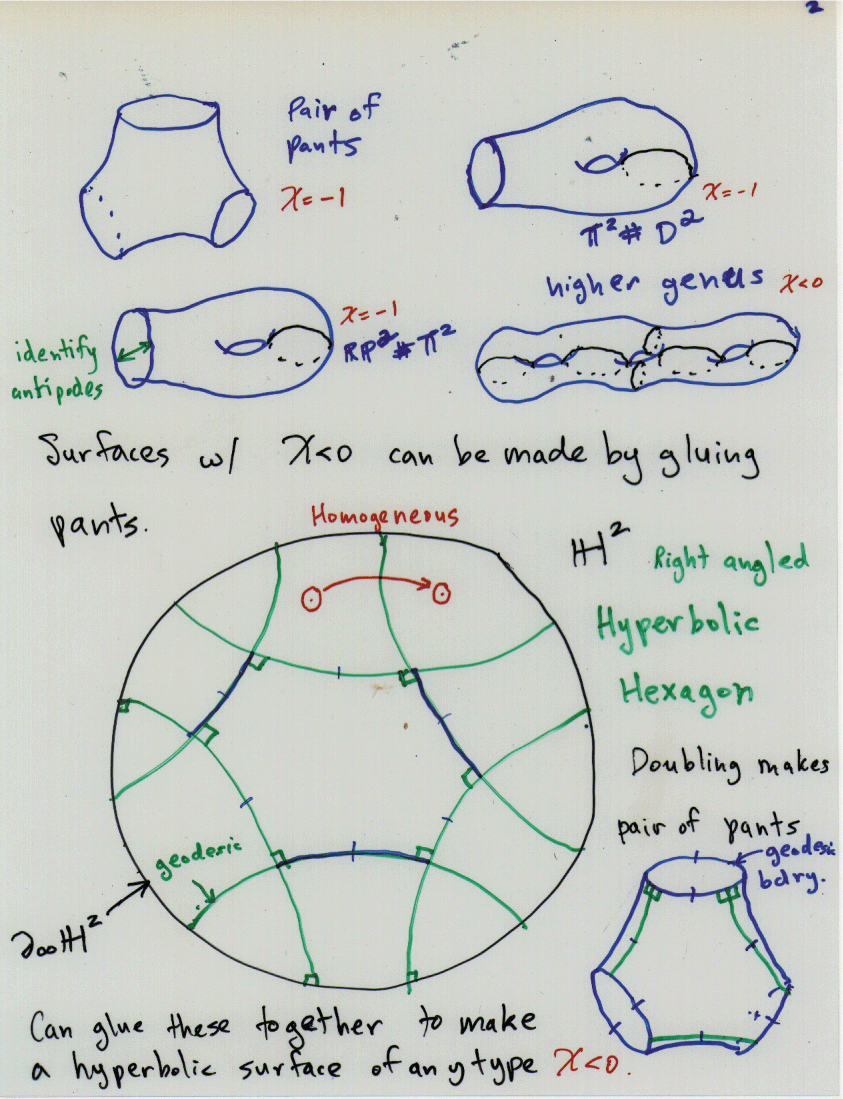 2
Pair of
pants
χ = -1
χ = -1
π² # D²
higher genus χ<0
χ = -1
RP² # π²
identify
antipodes
Surfaces w/ χ<0 can be made by gluing
pants.
Homogeneous
H²
Right angled
Hyperbolic
Hexagon
Doubling makes
pair of pants
geodesic
bdry.
geodesic
∂∞H²
Can glue these together to make
a hyperbolic surface of any type χ<0.